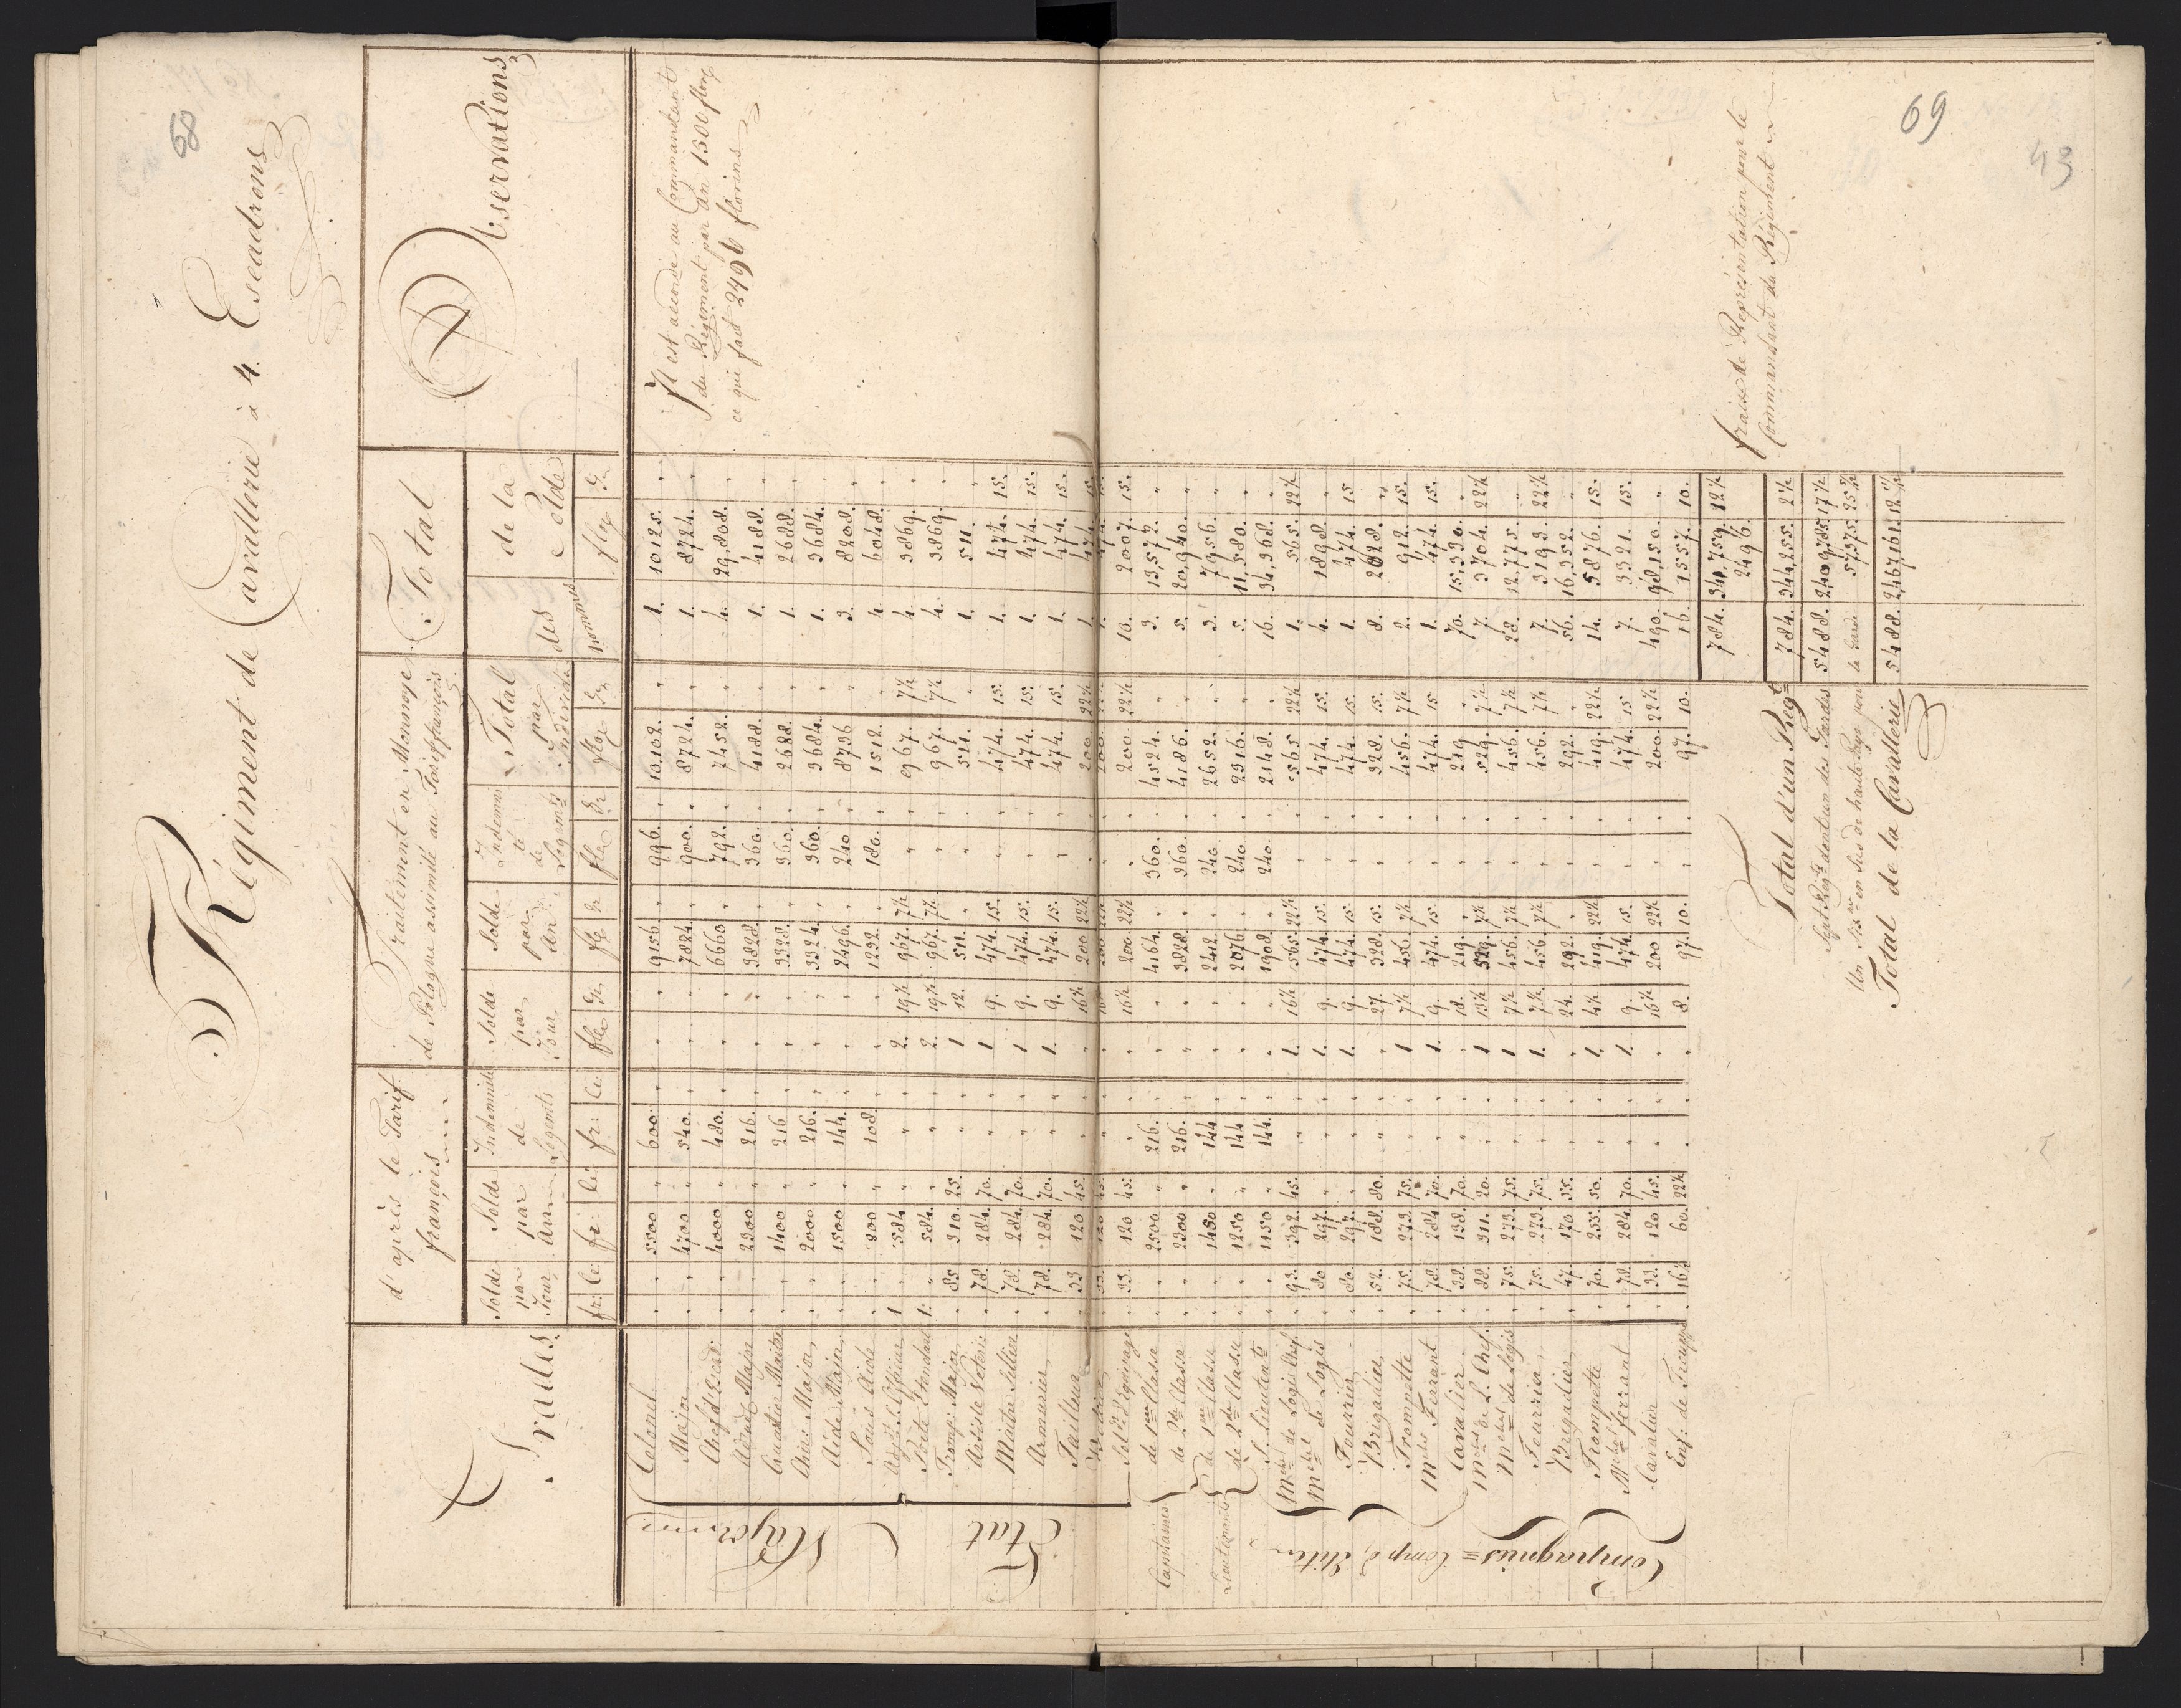 68
Régiment de Cavallerie à 4. Escadrons
Grades
d'après le Tarif françois
Traitement en Monnoye de Pologne assimilé au Tarif françois
Total
Observations
Solde par Jour
Solde par An
Indemnité de Logemts
Solde par Jour
Solde par An
Indemnité de Logemts
Total par individu
des hommes
de la Solde
fr: Ce: fr: Ce: fr: Ce: flor gr flor gr flor gr flor gr flor gr
Etat Major
Colonel " " 5500 " 600. " " " 9156 " 996. " 10,102. " 1. 10125. "
Major " " 4700 " 540. " " " 7884. " 900. " 8724. " 1. 8724. "
Chefs d'Escad: " " 4000 " 480. " " " 6660 " 792. " 7452. " 4. 29,808. "
Adjud. Major " " 2300 " 216. " " " 3828. " 360. " 4188. " 1. 4188. "
Quartier Maitre " " 1400 " 216 " " " 2328. " 360. " 2688. " 1. 2688. "
Chir: Major " " 2000 " 216. " " " 3324. " 360. " 3684. " 1. 3684. "
Aide Major " " 1500 " 144. " " " 2496. " 240 " 2736 " 3. 8208. "
Sous Aide " " 800 " 108 " " " 1332. " 180. " 1512. " 4. 6048. "
Adjt S. Officier 1 " 584 " " " 2. 19½ 967. 7½ " " 967. 7½ 4. 3869. "
Porte Etendart 1. " 584. " " " 2. 19½ 967. 7½ " " 967. 7½ 4. 3869. "
Tromp: Major " 85 310. 25. " " 1 12. 511. " " " 511. " 1. 511. "
Artiste Veterin: " 78. 284. 70. " " 1 9. 474. 15. " " 474. 15. 1. 474. 15.
Maitre Sellier " 78. 284. 70. " " 1 9. 474. 15. " " 474. 15. 1. 474. 15.
Armurier " 78. 284. 70. " " 1. 9. 474. 15. " " 474. 15. 1. 474. 15.
Tailleur " 33 120 45. " " " 16½ 200 22½ " " 200 22½ 1. 474. 15.
Sol. d'Equipage " 33. 120 45. " " " 16½ 200. 22½ " " 200. 22½ 10. 2007. 15.
Capitaines
de 1ere Classe " " 2500 " 216. " " " 4164. " 360. " 4524. " 3. 13,572. "
de 2de Classe " " 2300 " 216. " " " 3828. " 360. " 4186. " 5. 20,940. "
Lieutenants
de 1ere Classe " " 1450 " 144 " " " 2412. " 240 " 2652. " 3. 7956. "
de 2de Classe " " 1250 " 144 " " " 2076. " 240. " 2316. " 5. 11,580. "
S. Lieutents " " 1150 " 144. " " " 1908. " 240. " 2148. " 16. 34,368. "
Compagnies = Comp. d'Elite
Mchal de Logis Chef " 93. 392. 45. " " 1. 16½ 565. 22½ " " 565 22½ 1. 565. 22½
Mchal de Logis " 80 297. " " " 1. 9. 474. 15. " " 474. 15. 4. 1898. "
Fourrier " 80. 297. " " " 1. 9. 474. 15. " " 474. 15. 1. 474. 15
Brigadier " 52. 188. 80. " " " 27. 328. 15. " " 328. 15. 8. 2628. "
Trompette " 75. 273. 75. " " 1 7½ 456. 7½ " " 456. 7½ 2. 912. 15.
Mchal Ferrant " 78. 284 70. " " 1. 9. 474. 15. " " 474. 15 1. 474. 15.
Cavalier " 38. 138. 70. " " " 18. 219. " " " 219. " 70. 15,330. "
Mchal de L. Chef " 88. 311. 20. " " 1 13½ 529. 7½ " " 529. 7½ 7. 3704. 22½
Mchal de Logis " 75. 273. 75. " " 1 7½ 456. 7½ " " 456. 7½ 28. 12,775. "
Fourrier " 75. 273. 75. " " 1. 7½ 456 7½ " " 456. 7½ 7. 3193. 22½
Brigadier " 47. 170 55. " " " 24. 292. " " " 292. " 56. 16,352. "
Trompette " 70. 255. 50. " " 1. 4½ 419. 22½ " " 419. 22½ 14. 5876. 15.
Mchal ferrant " 78. 284 70. " " 1. 9. 474. 15. " " 474. 15 7. 3321. 15.
Cavalier " 33. 120 45. " " " 16½ 200 22½ " " 200. 22½ 490. 98,150. "
Enf: de Troupe " 16½ 60. 22½ " " " 8. 97. 10. " " 97. 10. 16. 1557. 10.
Il est accordé au Commandant
du Régiment par an 1500 flor
ce qui fait 2496 florins
784. 340,759. 22½
2496.
fraix de Représentation pour le
Commandant du Régiment
Total d'un Régt = 784. 344,255. 2½
Sept Régts dont un des Gardes 5488. 2,409,785. 17½
Un Six en Sus de haute Paye pour la Garde 57,375. 25
Total de la Cavallerie 5488. 2,467,161. 12
69
43